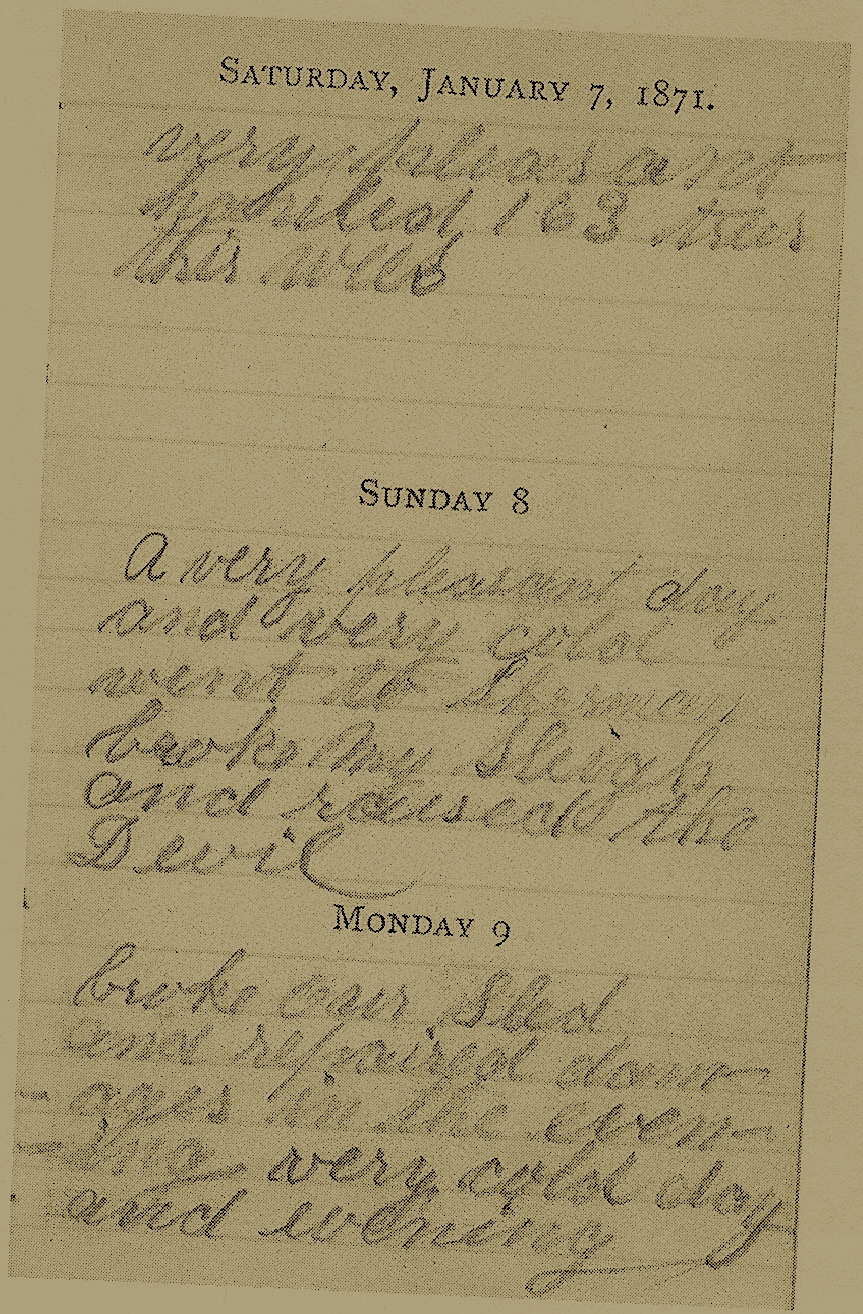 SATURDAY, JANUARY 7, 1871.
very pleasant
hauled 163 trees
this week
SUNDAY 8
A very pleasant day
and very cold
went to Sherman
broke my Sleigh
and raised the
Devil
MONDAY 9
broke our Sled
and repaired dam-
ages in the even-
ing very cold day
and evening